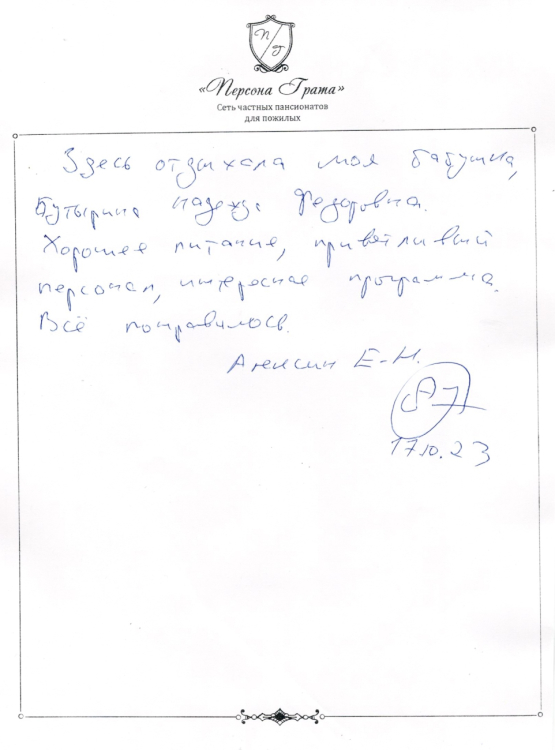 П/Г
«Персона Грата»
Сеть частных пансионатов
для пожилых
Здесь отдыхала моя бабушка,
Бутырина Надежда Федоровна.
Хорошее питание, приветливый
персонал, интересная программа.
Всё понравилось.
Е.Н.
17.10.23